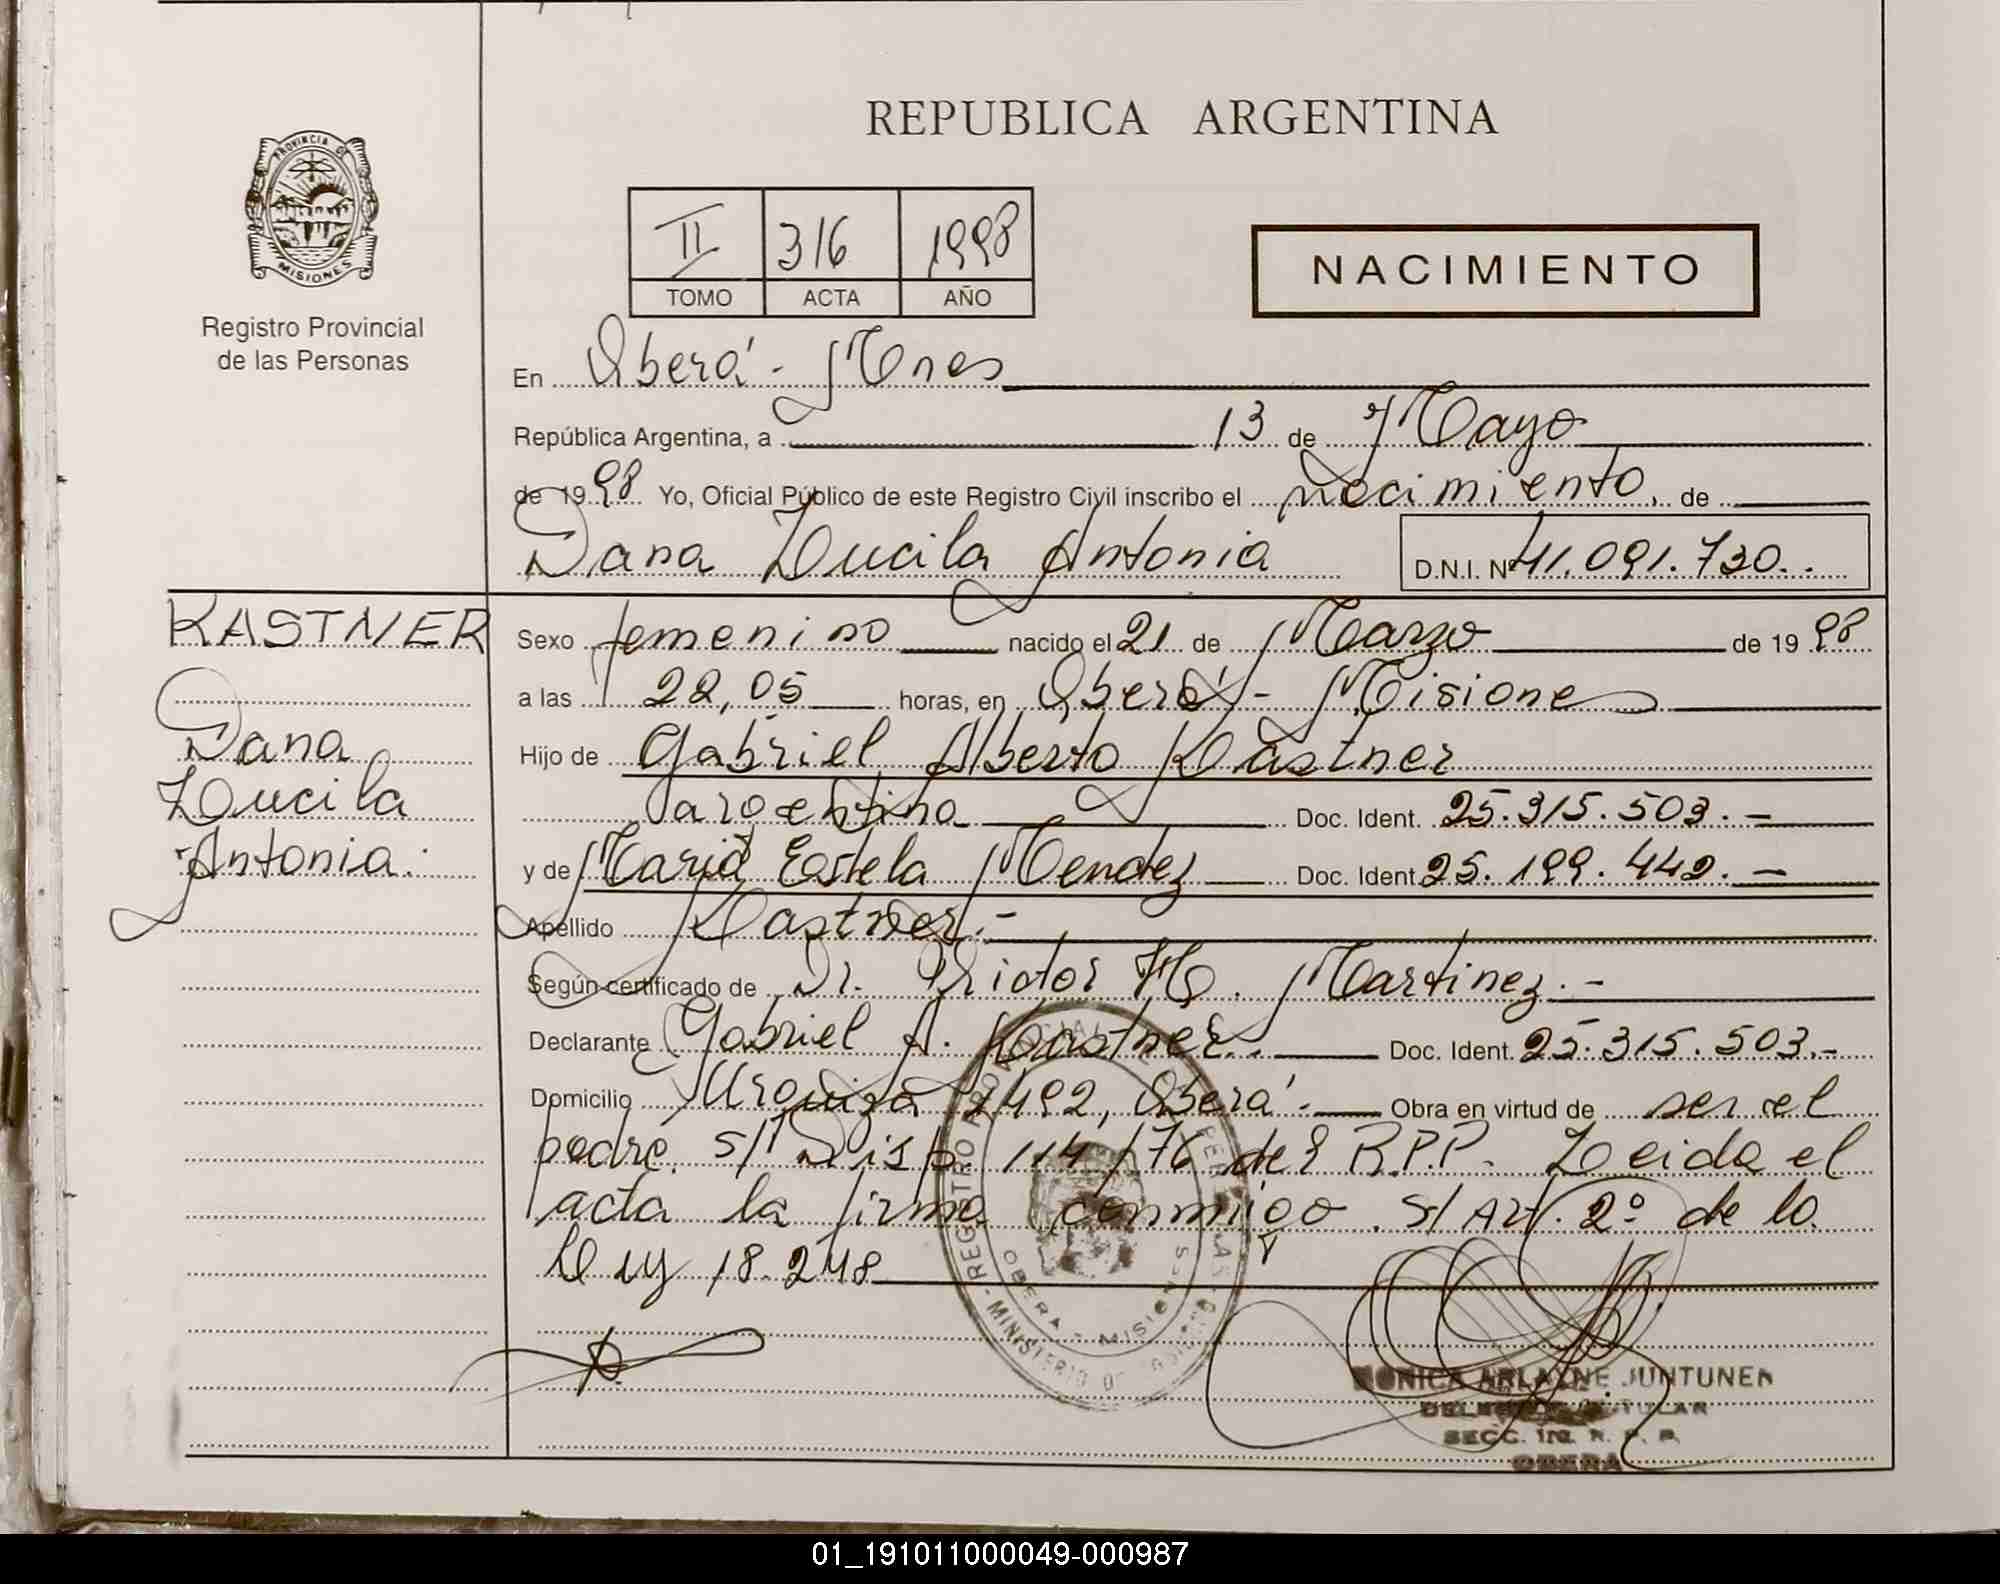 REPUBLICA ARGENTINA
PROVINCIA DE
MISIONES
Registro Provincial
de las Personas
II 316 1998
TOMO ACTA AÑO
NACIMIENTO
En Oberá - Mnes
República Argentina, a 13 de Mayo
de 1998 Yo, Oficial Público de este Registro Civil inscribo el nacimiento, de
Dana Lucila Antonia D.N.I. Nº 41.091.730..
KASTNER
Dana
Lucila
Antonia.
Sexo femenino nacido el 21 de Marzo de 1998
a las 22,05 horas, en Oberá - Misiones
Hijo de Gabriel Alberto Kastner
argentino Doc. Ident. 25.315.503.-
y de Maria Estela Mendez Doc. Ident. 25.199.442.-
Apellido Kastner.-
Según certificado de Dr. Victor H. Martinez.-
Declarante Gabriel A. Kastner.. Doc. Ident. 25.315.503.-
Domicilio Urquiza 2492, Oberá.- Obra en virtud de ser el
padre. s/ Disp. 114/76 del R.P.P. Leida el
acta la firma conmigo. s/ Art. 2º de la
Ley 18.248
OBERA - MISIONES
MONICA ARLAYNE JUNTUNEN
DELEGADA TITULAR
SECC. 1ra. R. P. P.
OBERA
01_191011000049-000987